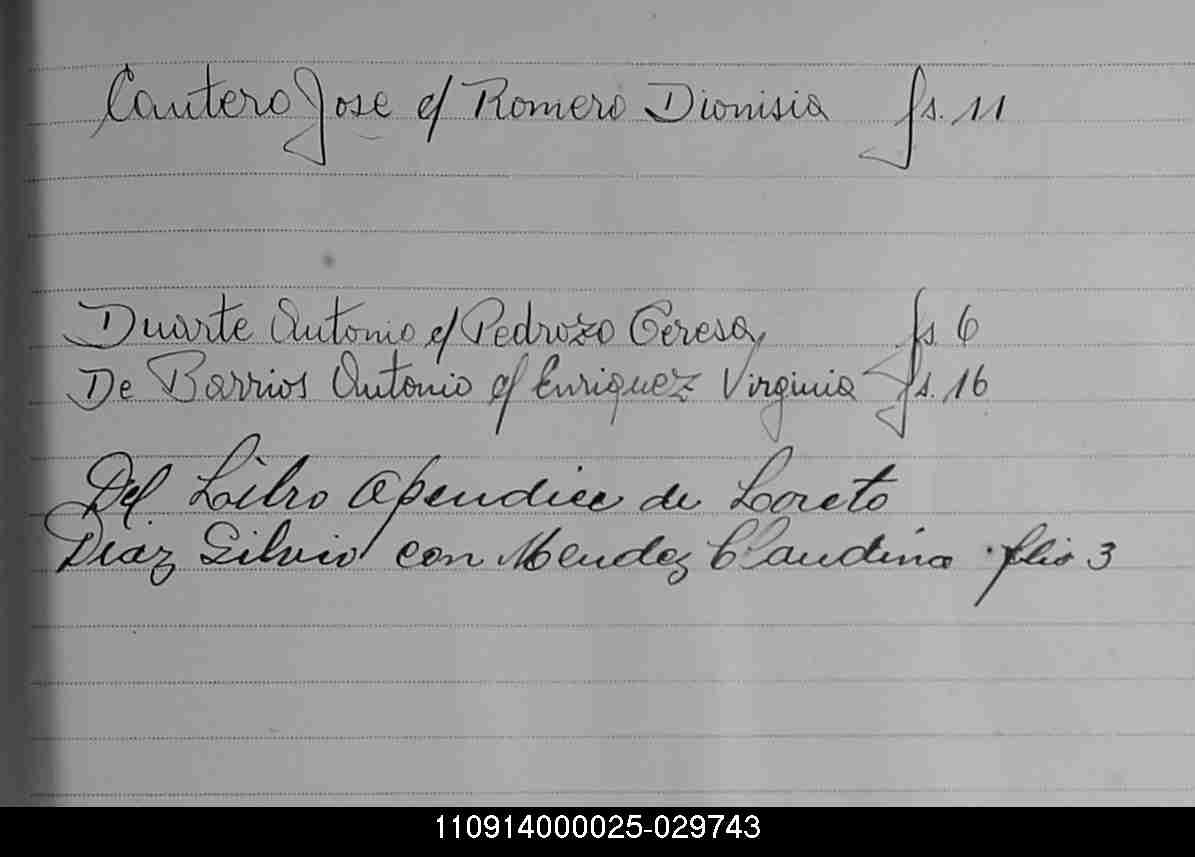 Cantero Jose c/ Romero Dionisia fs. 11
Duarte Antonio c/ Pedrozo Teresa, fs. 6
De Barrios Antonio c/ Enriquez Virginia fs. 16
Del Libro Apendice de Loreto
Diaz Silvio con Mendez Claudina folio 3
110914000025-029743